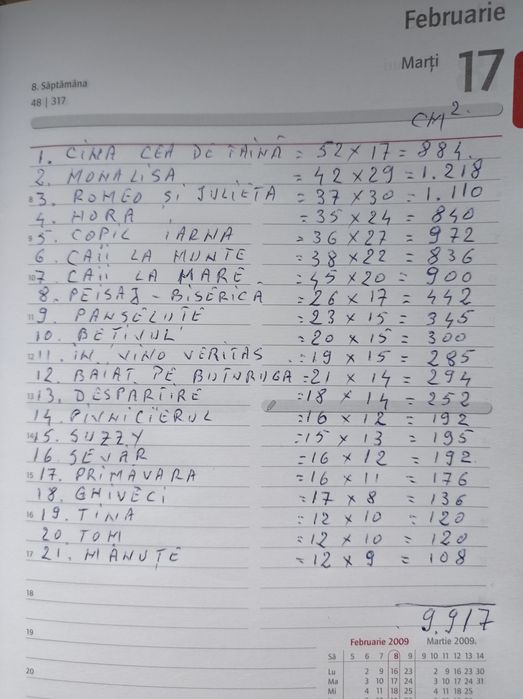 Februarie
Marți 17
8. Săptămâna
48 | 317
CM².
1. CINA CEA DE TAINĂ = 52 x 17 = 884.
2. MONALISA = 42 x 29 = 1.218
8 3. ROMEO ȘI JULIETA = 37 x 30 = 1.110
4. HORA = 35 x 24 = 840
9 5. COPIL IARNA = 36 x 27 = 972
6. CAII LA MUNTE = 38 x 22 = 836
10 7. CAII LA MARE = 45 x 20 = 900
8. PEISAJ - BISERICA = 26 x 17 = 442
11 9. PANSELUTE = 23 x 15 = 345
10. BETIVUL = 20 x 15 = 300
12 11. IN VINO VERITAS = 19 x 15 = 285
12. BAIAT PE BUTURUGA = 21 x 14 = 294
13 13. DESPARTIRE = 18 x 14 = 252
14. PIVNICIERUL = 16 x 12 = 192
14 15. SUZZY = 15 x 13 = 195
16. SEVAR = 16 x 12 = 192.
15 17. PRIMAVARA = 16 x 11 = 176
18. GHIVECI = 17 x 8 = 136
16 19. TINA = 12 x 10 = 120
20. TOM = 12 x 10 = 120
17 21. MĂNUȚE = 12 x 9 = 108
18
9.917
19
Februarie 2009 Martie 2009
Să 5 6 7 8 9 9 10 11 12 13 14
20 Lu 2 9 16 23 2 9 16 23 30
Ma 3 10 17 24 3 10 17 24 31
Mi 4 11 18 25 4 11 18 25